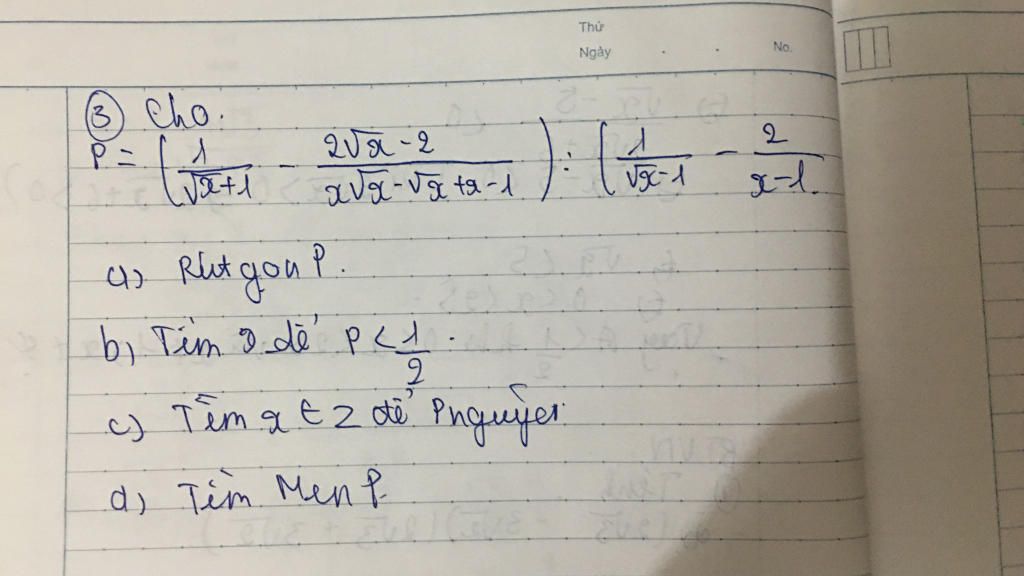 Thứ
Ngày . . No.
③ Cho.
P = ( 1/(√x+1) - (2√x-2)/(x√x-√x+x-1) ) : ( 1/(√x-1) - 2/(x-1)
a) Rút gọn P.
b) Tìm x để P < 1/2.
c) Tìm x ∈ Z để P nguyên
d) Tìm Min P.